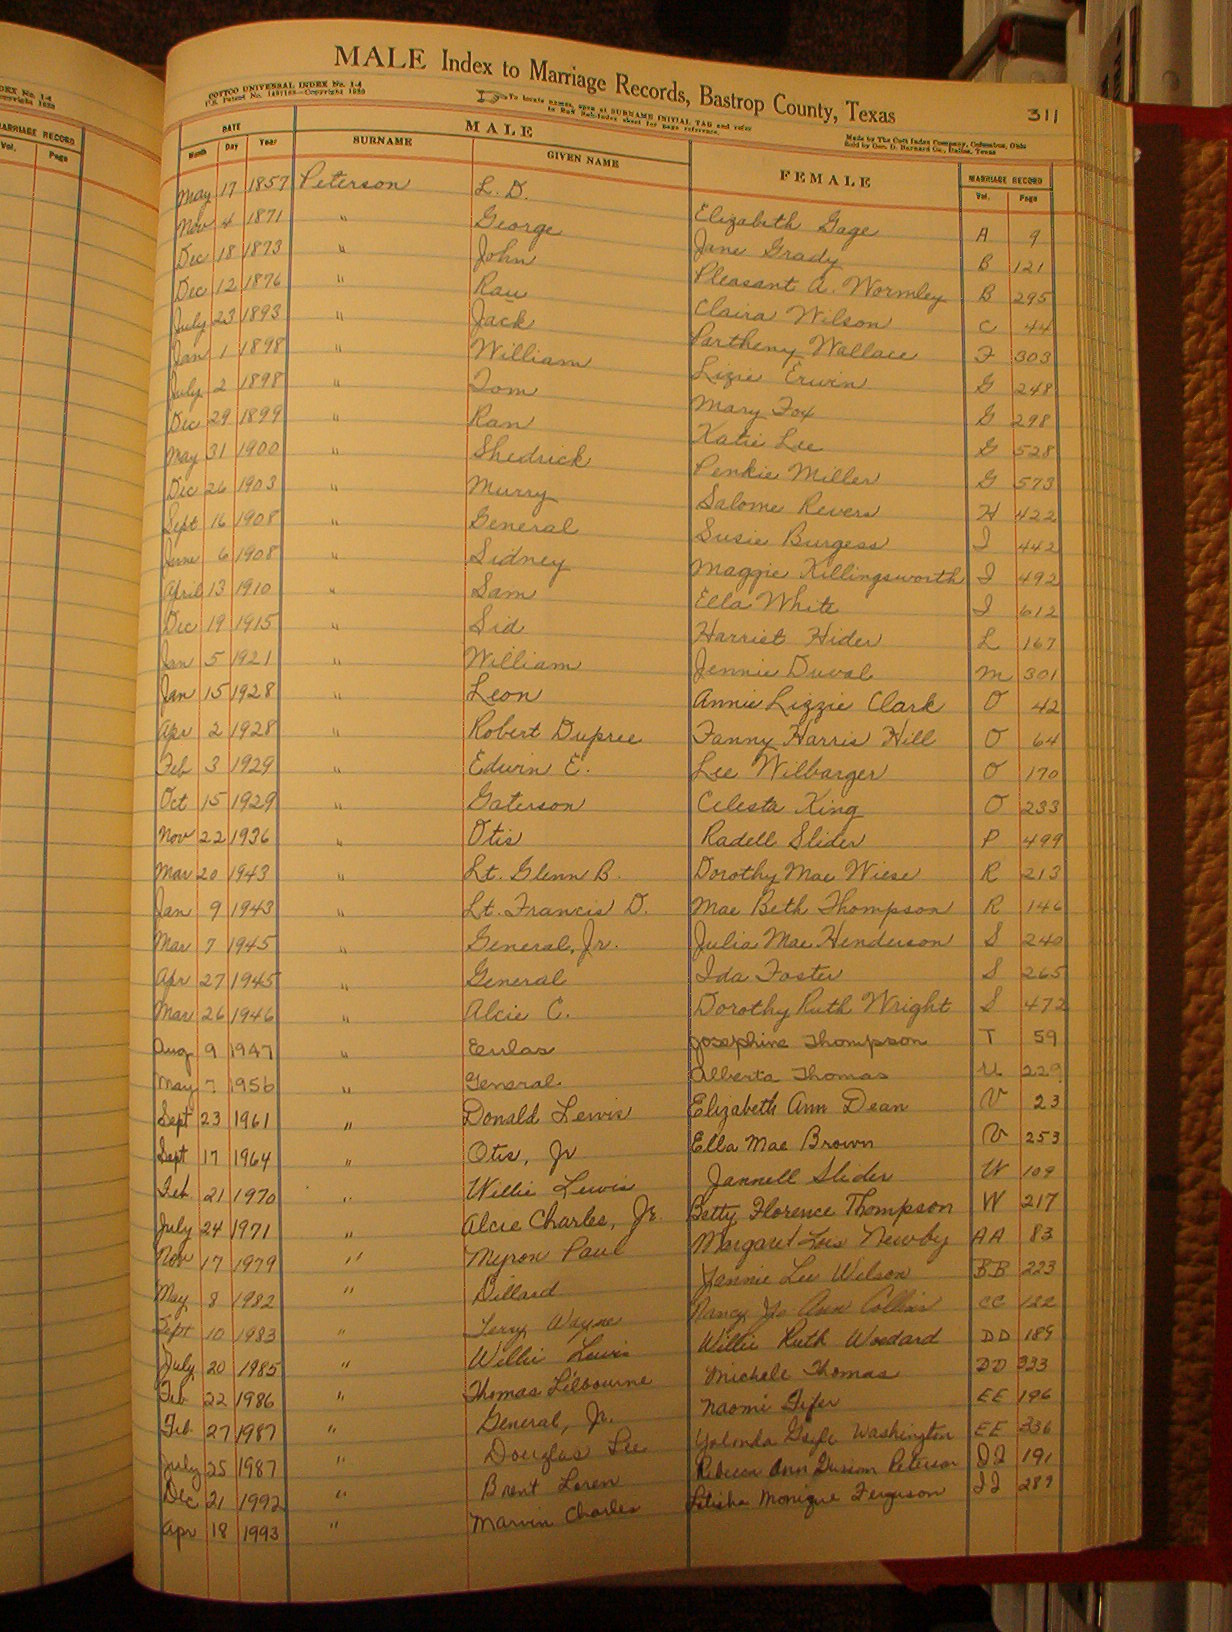 EX No. 1-4
Copyright 1930
MARRIAGE RECORD
Vol. Page
MALE Index to Marriage Records, Bastrop County, Texas
311
COTTCO UNIVERSAL INDEX No. 1-4
U.S. Patent No. Copyright 1930
To locate names, open at SURNAME INITIAL TAB and refer
to Red Sub-Index sheet for page reference.
Made by The Cott Index Company, Columbus, Ohio
Sold by Geo. D. Barnard Co., Dallas, Texas
DATE MALE FEMALE MARRIAGE RECORD
Month Day Year SURNAME GIVEN NAME Vol. Page
May 17 1857 Peterson L. D. Elizabeth Gage A 9
Nov 4 1871 " George Jane Grady B 121
Dec 18 1873 " John Pleasant A. Wormley B 295
Dec 12 1876 " Rau Claira Wilson C 44
July 23 1893 " Jack Partheny Wallace F 303
Jan 1 1898 " William Lizie Erwin G 248
July 2 1898 " Tom Mary Fox G 298
Dec 29 1899 " Ran Katie Lee G 528
May 31 1900 " Shedrick Penkie Miller G 573
Dec 26 1903 " Murry Salome Revers H 422
Sept 16 1908 " General Susie Burgess I 442
June 6 1908 " Sidney Maggie Killingsworth I 492
April 13 1910 " Sam Ella White I 612
Dec 19 1915 " Sid Harriet Hider L 167
Jan 5 1921 " William Jennie Duval M 301
Jan 15 1928 " Leon Annie Lizzie Clark O 42
Apr 2 1928 " Robert Dupree Fanny Harris Hill O 64
Feb 3 1929 " Edwin E. Lee Wilbarger O 170
Oct 15 1929 " Gaterson Celesta King O 233
Nov 22 1936 " Otis Radell Slider P 499
Mar 20 1943 " Lt. Glenn B. Dorothy Mae Wiese R 213
Jan 9 1943 " Lt. Francis D. Mae Beth Thompson R 146
Mar 7 1945 " General, Jr. Julia Mae Henderson S 240
Apr 27 1945 " General Ida Foster S 265
Mar 26 1946 " Alcie C. Dorothy Ruth Wright S 472
Aug 9 1947 " Eeulas Josephine Thompson T 59
May 7 1956 " General Alberta Thomas U 229
Sept 23 1961 " Donald Lewis Elizabeth Ann Dean V 23
Sept 17 1964 " Otis, Jr Ella Mae Brown V 253
Feb 21 1970 " Willie Lewis Jannell Slider W 109
July 24 1971 " Alcie Charles, Jr. Betty Florence Thompson W 217
Nov 17 1979 " Myron Paul Margaret Lois Newby AA 83
May 8 1982 " Dillard Jannie Lee Wilson BB 223
Sept 10 1983 " Terry Wayne Nancy Jo Ann Collins CC 122
July 20 1985 " Willie Lewis Willie Ruth Woodard DD 189
Feb 22 1986 " Thomas Lilbourne Michele Thomas DD 333
Feb 27 1987 " General, Jr. Naomi Fifer EE 196
July 25 1987 " Douglas Lee Yolonda Gayle Washington EE 336
Dec 21 1992 " Brent Loren Rebecca Ann Peterson II 191
Apr 18 1993 " Marvin Charles Letisha Monique Ferguson II 289